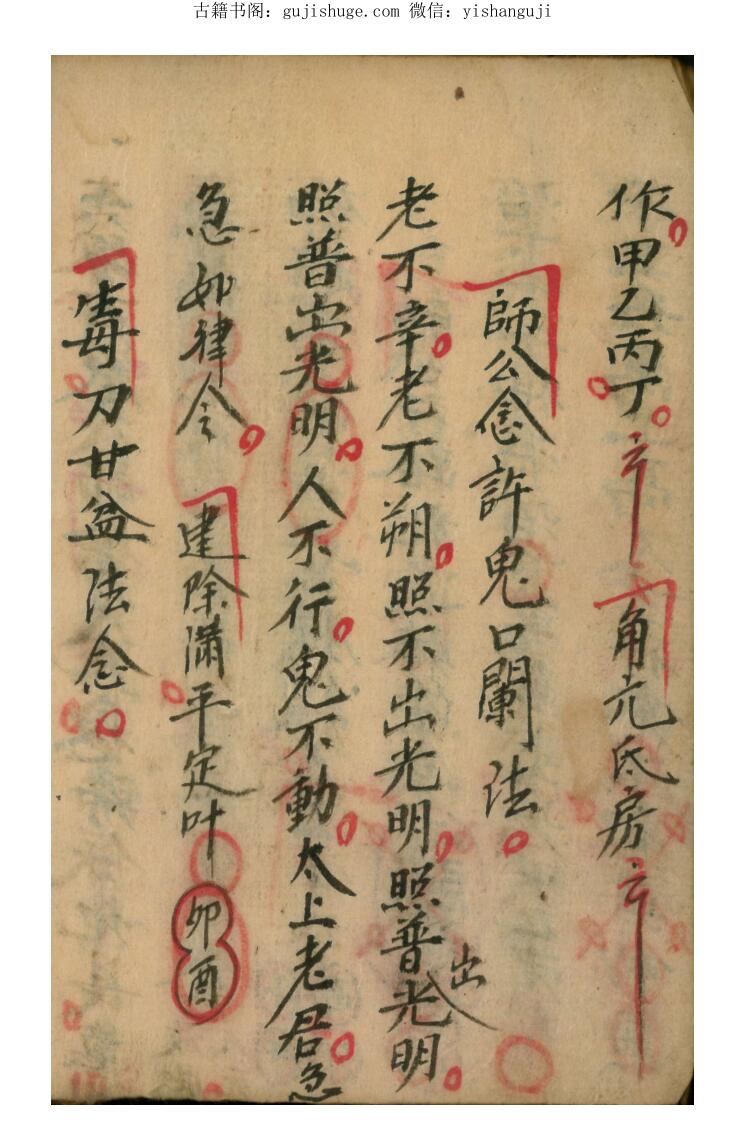 古籍书阁：gujishuge.com 微信：yishanguji
作甲乙丙丁 角亢氐房
師公念許鬼口闌法
老不辛老不朔照不出光明照普出光明
照普出光明人不行鬼不動太上老君急
急如律令 建除滿平定叶 卯酉
毒刀甘益法念